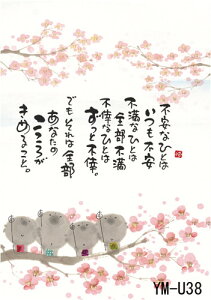 不安なひとは
いつも不安
不満なひとは
全部不満
不倖なひとは
ずっと不倖。
でもそれは全部
あなたの
こころが
きめること。
YM-U38